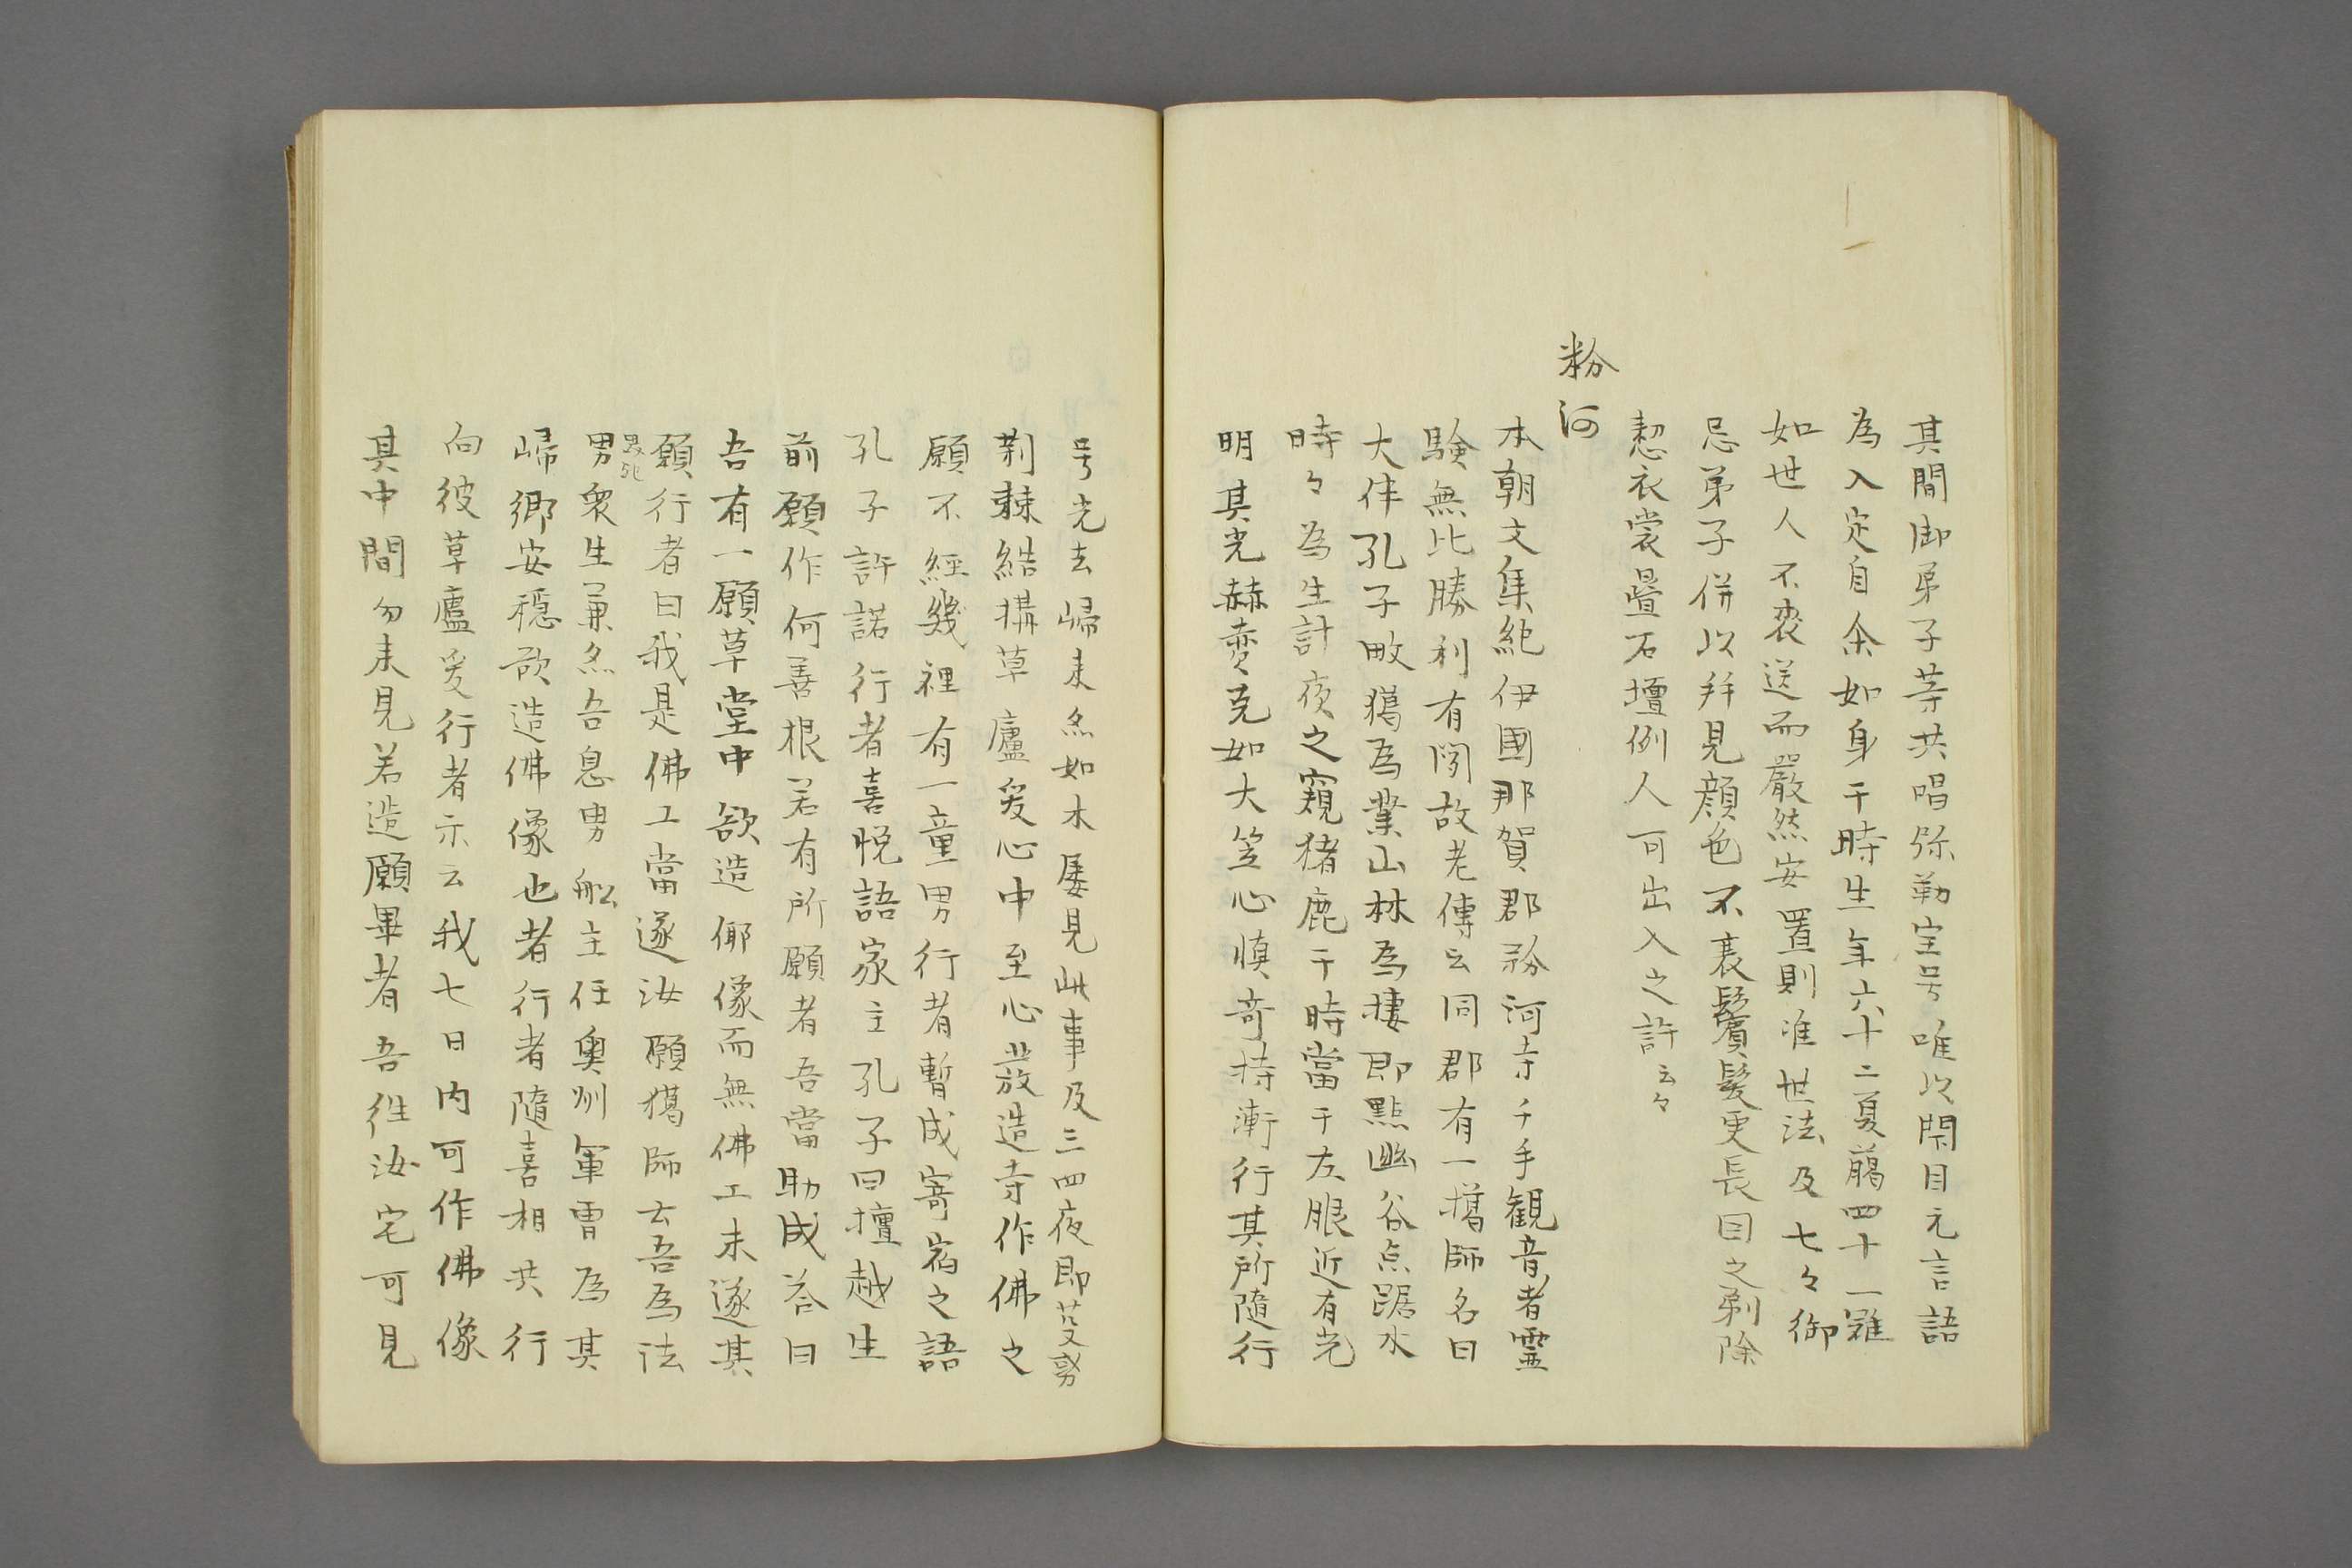 其間御弟子等共唱弥勒宝号唯以閇目无言語
為入定自余如身于時生年六十二夏臈四十一雖
如世人不喪送而嚴然安置則准世法及七々御
忌弟子併以拜見顔色不衰鬢髪更長因之剃除
整衣裳疊石壇例人可出入之許云々
粉河
本朝文集紀伊國那賀郡粉河寺千手観音者霊
験無比勝利有聞故老傳云同郡有一獦師名曰
大伴孔子畋獦為業山林為捿即點幽谷点踞木
時々為生計夜之窺猪鹿于時當于左眼近有光
明其光赫奕光如大笠心慎奇持漸行其所隨行
号光去歸来然如木屡見此事及三四夜即芟剪
荆棘結搆草廬爰心中至心發造寺作佛之
願不經幾裡有一童男行者暫成寄宿之語
孔子許諾行者喜悅語家主孔子曰檀越生
前願作何善根若有所願者吾當助成荅曰
吾有一願草堂中欲造佛像而無佛工未遂其
願行者曰我是佛工當遂汝願獦師云吾為法
男衆生兼然吾息男舩主任奥州軍曹為其
歸郷安穏欲造佛像也者行者隨喜相共行
向彼草廬爰行者示云我七日内可作佛像
其中間勿来見若造願畢者吾往汝宅可見